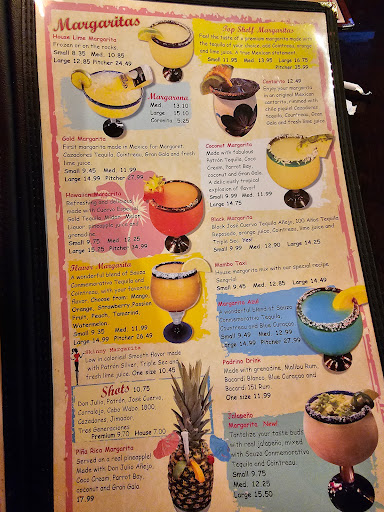 Margaritas
House Lime Margarita
Frozen or on the rocks.
Small 8.35 Med. 10.85
Large 12.85 Pitcher 24.49
Margarona
Med. 13.10
Large 15.10
Coronita 5.25
Gold Margarita
First margarita made in Mexico for Margaret
Cazadores Tequila, Cointreau, Gran Gala and fresh
lime juice.
Small 9.45 Med. 11.99
Large 14.99 Pitcher 27.99
Hawaiian Margarita
Refreshing and delicious
made with Cuervo
Gold Tequila, Midori Melon
Liquor, pineapple juice and
grenadine.
Small 9.75 Med. 12.25
Large 15.25 Pitcher 14.99
Flavor Margarita
A wonderful blend of Sauza
Commemorativo Tequila and
Cointreau, with your favorite
flavor. Choose from: Mango,
Orange, Strawberry, Passion
Fruit, Peach, Tamarind,
Watermelon.
Small 9.35 Med. 11.99
Large 14.99 Pitcher 26.49
Skinny Margarita
Low in calories! Smooth flavor made
with Patrón Silver, Triple Sec and
fresh lime juice. One size 10.45
Shots 10.75
Don Julio, Patrón, Jose Cuervo,
Corralejo, Cabo Wabo, 1800,
Cazadores, Jimador,
Tres Generaciones
Premium 9.70 House 7.00
Piña Rica Margarita
Served on a real pineapple!
Made with Don Julio Añejo,
Coco Cream, Parrot Bay,
coconut and Gran Gala
17.99
Top Shelf Margaritas
Feel the taste of a premium margarita made with
the tequila of your choice, add Cointreau, orange
and lime juice. A true Mexican statement.
Small 11.95 Med. 13.95 Large 16.75
Pitcher 35.99
Cantarito 12.49
Enjoy your margarita
in an original Mexican
cantarito, rimmed with
chile piquin! Cazadores
tequila, Cointreau, Gran
Gala and fresh lime juice
Coconut Margarita
Made with fabulous
Patrón Tequila, Coco
Cream, Parrot Bay,
coconut and Gran Gala.
A deliciously tropical
explosion of flavor!
Small 9.99 Med. 11.99
Large 14.75
Black Margarita
Black Jose Cuervo Tequila Añejo, 100 Años Tequila
Reposado, orange juice, Cointreau, lime juice and
Triple Sec. Yes!
Small 9.99 Med. 12.90 Large 14.25
Mambo Taxi
House margarita mix with our special recipe
Sangria!
Small 9.45 Med. 12.25 Large 14.25
Margarita Azul
A wonderful blend of Sauza
Commemorativo Tequila,
Cointreau and Blue Curaçao
Small 9.45 Med. 12.99
Large 14.99 Pitcher 27.49
Padrino Drink
Made with grenadine, Malibu Rum,
Bacardi Blanco, Blue Curaçao and
Bacardi 151 Rum.
One size 11.99
Jalapeño
Margarita New!
Tantalize your taste buds
with real jalapeño, mixed
with Sauza Commemorativo
Tequila and Cointreau.
Small 9.75
Med. 12.25
Large 15.50